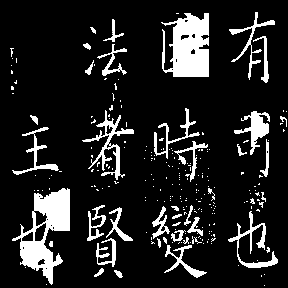 有司也
因時變
法者賢
主也